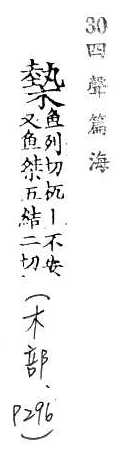 30 四聲篇海
鱼列切杌丨不安
又鱼桀五結二切
(木部、P296)